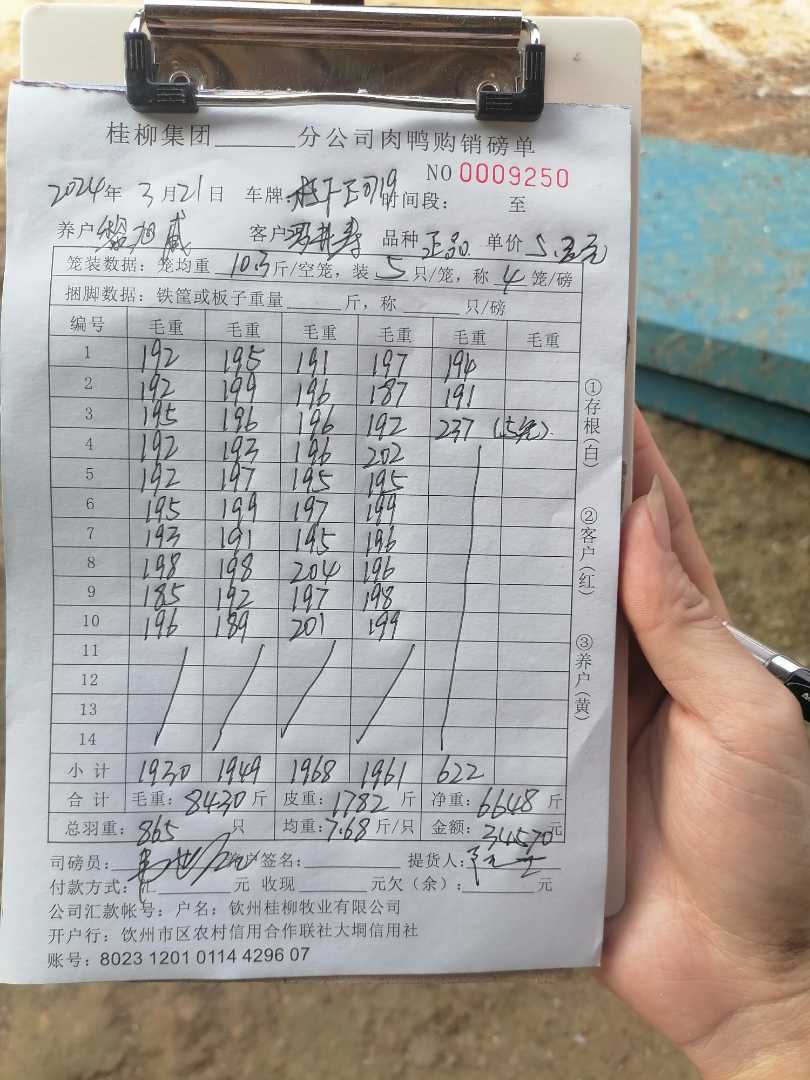 桂柳集团______分公司肉鸭购销磅单
NO 0009250
2024年 3月21日 车牌: 时间段: 至
养户 客户 品种 正品 单价
笼装数据: 笼均重 10.3 斤/空笼, 装 5 只/笼, 称 4 笼/磅
捆脚数据: 铁筐或板子重量______斤, 称______只/磅
编号 毛重 毛重 毛重 毛重 毛重 毛重
1 192 195 191 197 194
2 192 199 196 187 191
3 195 196 196 192 237 (5笼)
4 192 193 196 202
5 192 197 195 195
6 195 199 197 199
7 193 191 195 196
8 198 198 204 196
9 185 192 197 198
10 196 189 201 199
11
12
13
14
小计 1930 1949 1968 1961 622
合计 毛重: 8430 斤 皮重: 1782 斤 净重: 6648 斤
总羽重: 865 只 均重: 7.68 斤/只 金额: 34570 元
司磅员: 养户签名: 提货人:
付款方式: 汇______元 收现______元欠(余): ______元
公司汇款帐号: 户名: 钦州桂柳牧业有限公司
开户行: 钦州市区农村信用合作联社大垌信用社
账号: 8023 1201 0114 4296 07
①存根(白)
②客户(红)
③养户(黄)